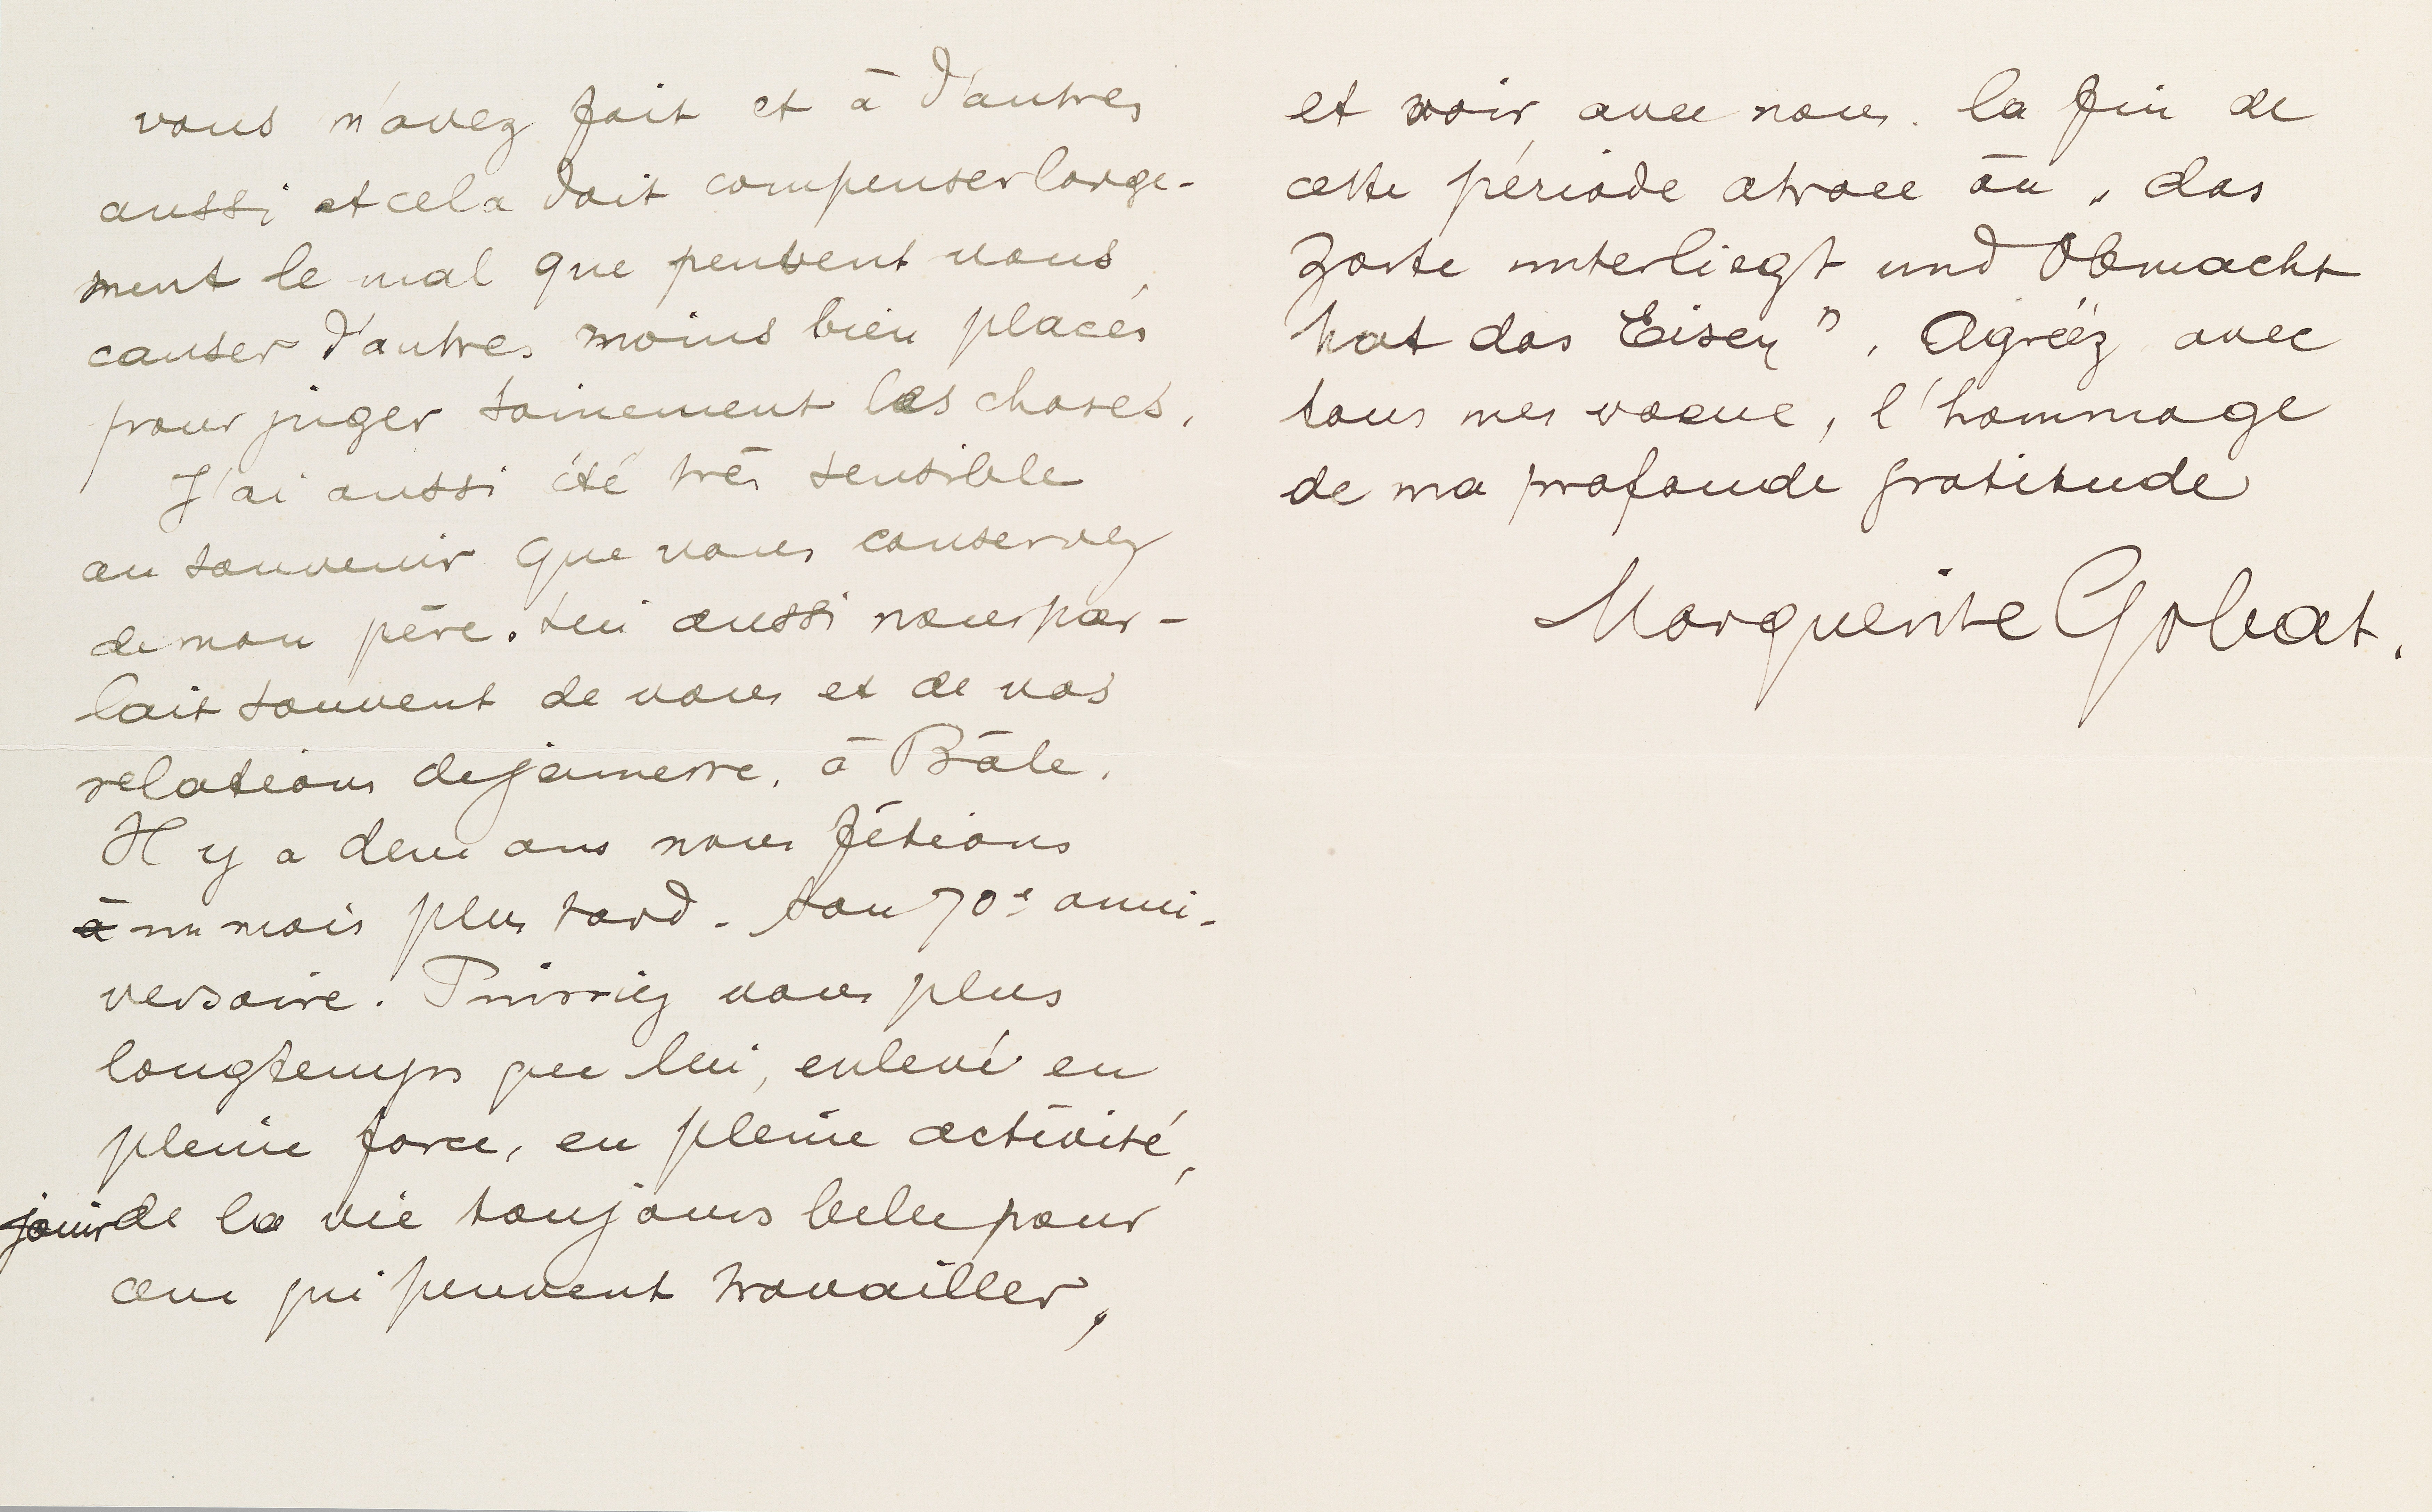 vous m'avez fait et à d'autres
aussi et cela doit compenser large-
ment le mal que peuvent vous
causer d'autres moins bien placés
pour juger sainement les choses.
J'ai aussi été très sensible
au souvenir que vous conservez
de mon père. Lui aussi nous par-
lait souvent de vous et de vos
relations de jeunesse, à Bâle.
Il y a deux ans nous fêtions
à un mois plus tard - son 70e anni-
versaire. Puissiez vous plus
longtemps que lui, enlevé en
pleine force, en pleine activité,
jouir de la vie toujours belle pour
ceux qui peuvent travailler,
et voir avec nous la fin de
cette période atroce où „das
Zarte unterliegt und Obmacht
hat das Eisen". Agréez avec
tous mes vœux, l'hommage
de ma profonde gratitude
Marguerite Gobat.